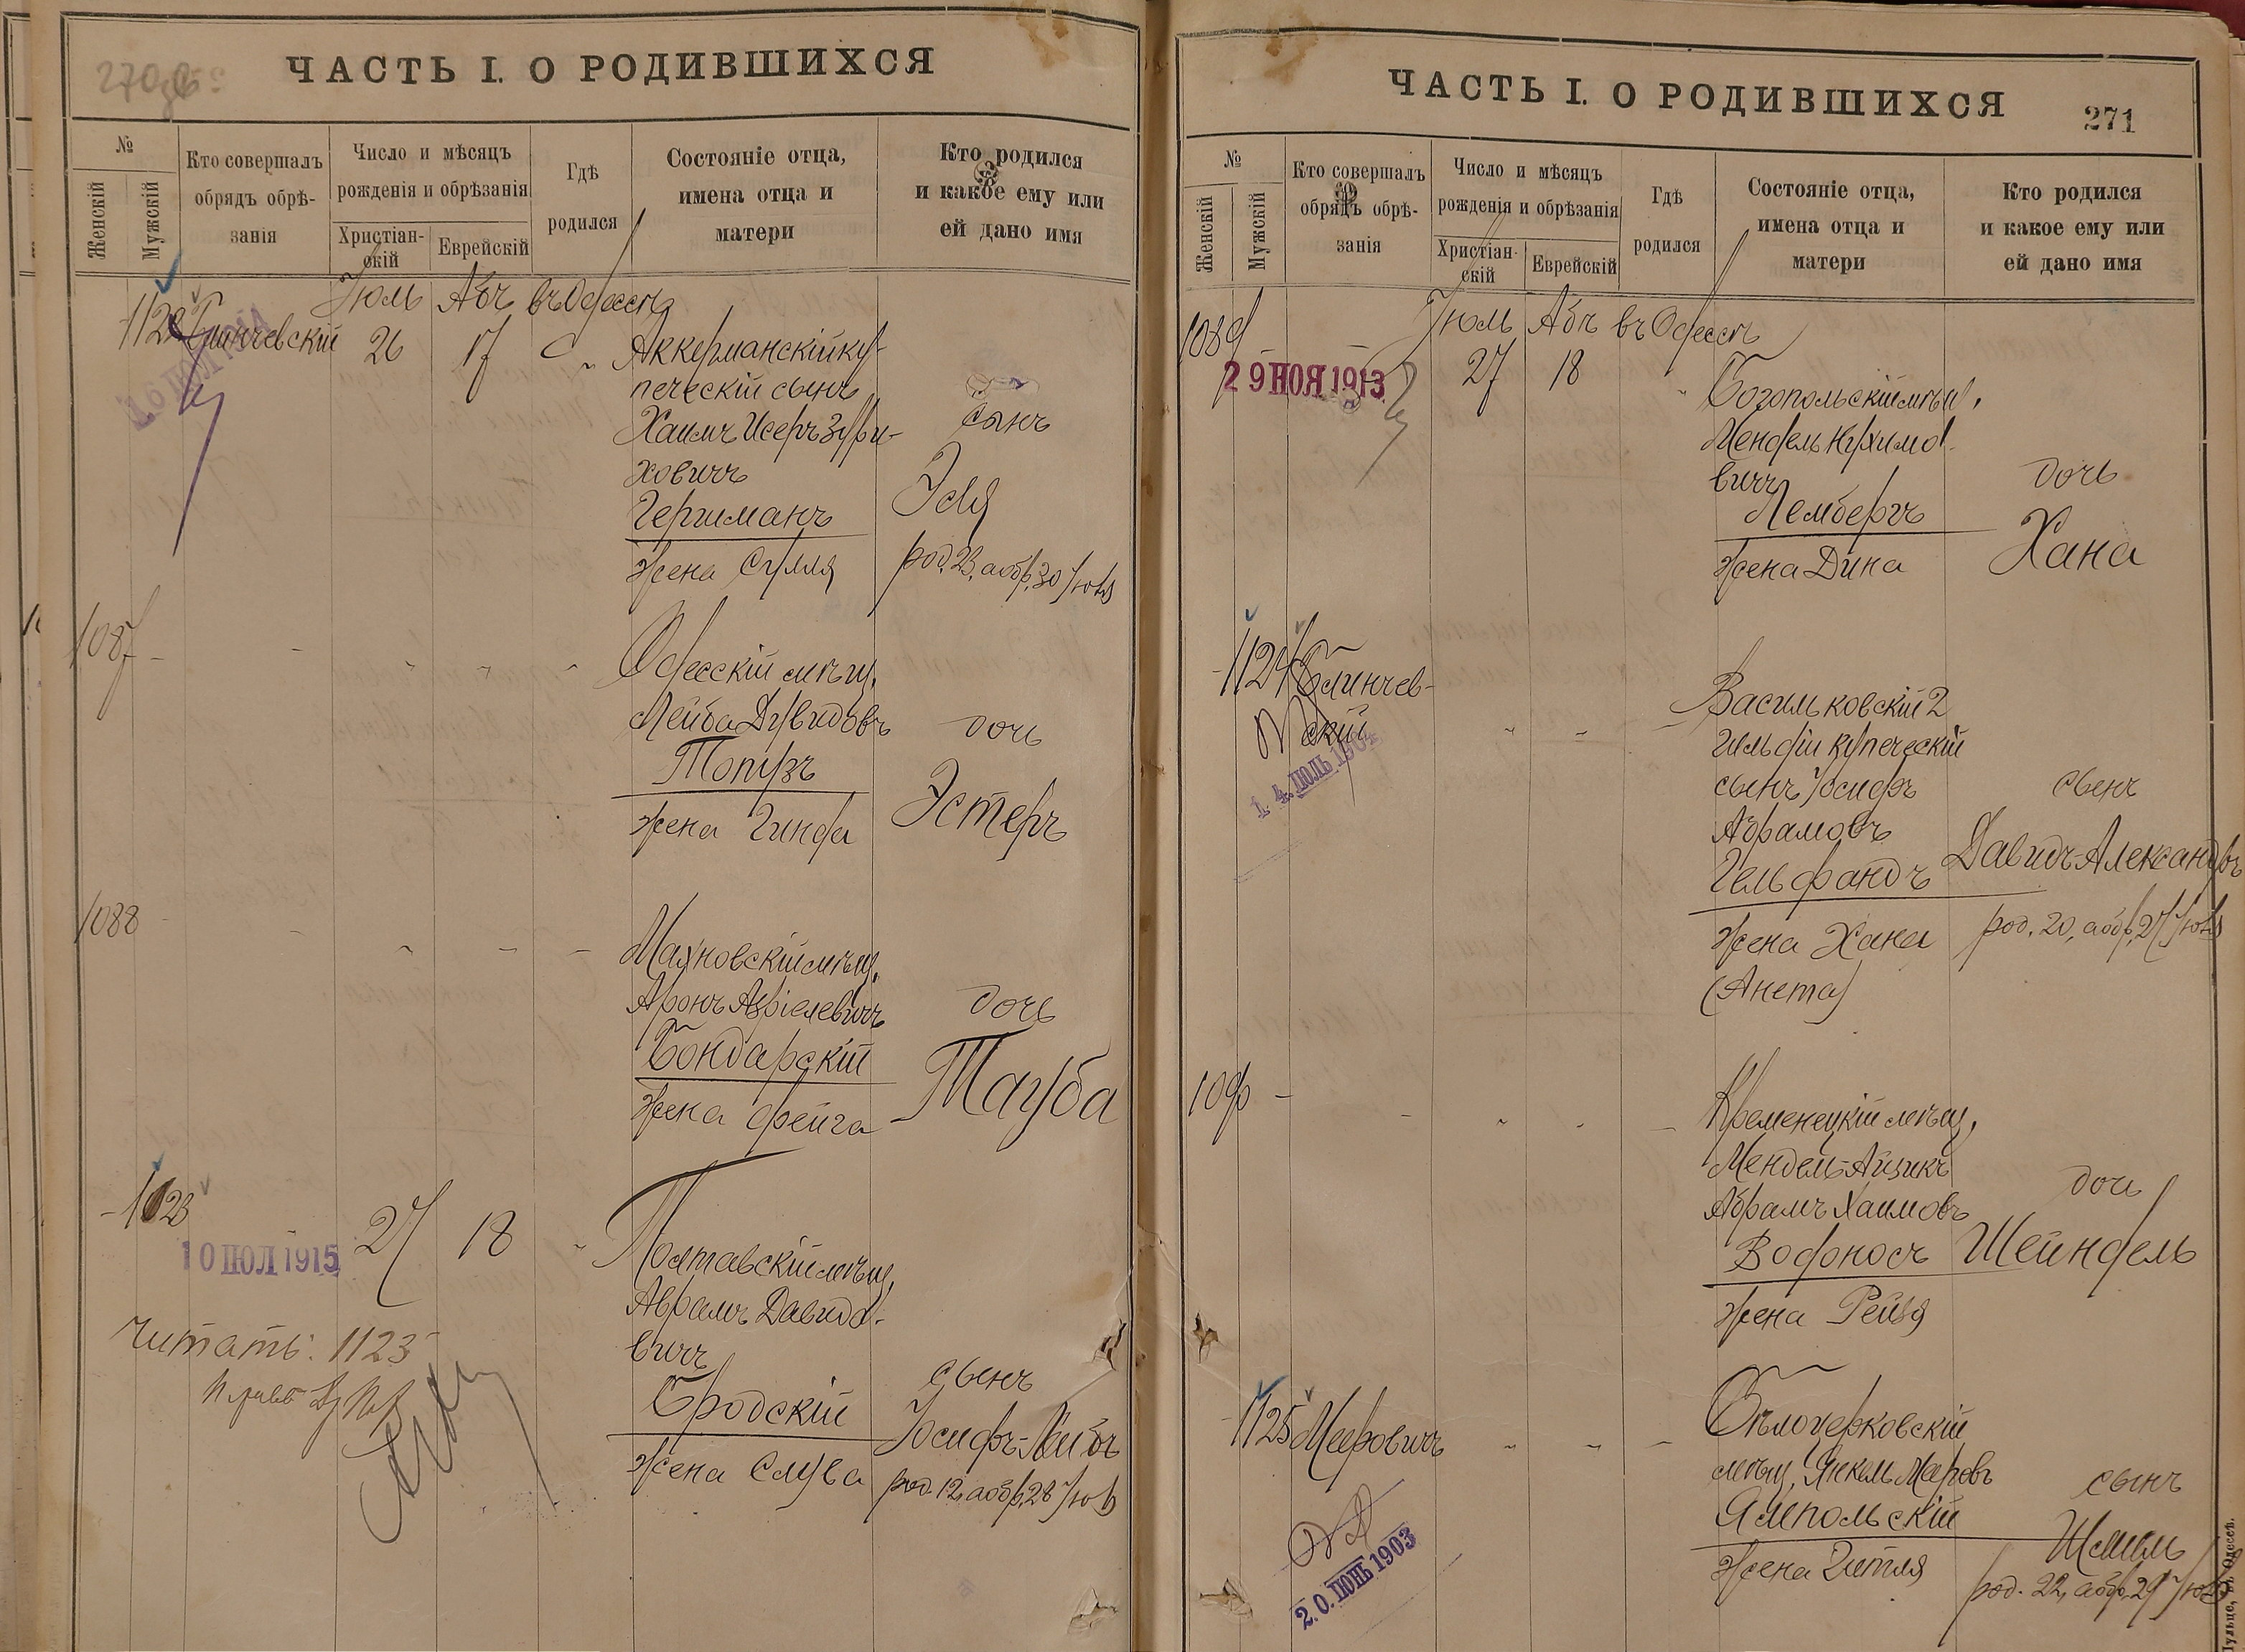 270об.
ЧАСТЬ I. О РОДИВШИХСЯ
№
Женскій
Мужскій
Кто совершалъ
обрядъ обрѣ-
занія
Число и мѣсяцъ
рожденія и обрѣзанія
Христіан-
скій
Еврейскій
Гдѣ
родился
Состояніе отца,
имена отца и
матери
Кто родился
и какое ему или
ей дано имя
Іюль Абъ въ Одессѣ
1122 Блинчевскій 26 17
Аккерманскій ку-
печескій сынъ
Хаимъ Исеръ
ховичъ
Гершманъ
жена Сулля
сынъ
род. 23, а обр. 30 Іюля
1087
Одесскій мѣщ.
Лейба Дувидовъ
Топузъ
жена Гинда
дочь
Эстеръ
1088
Махновскій мѣщ.
Аронъ Азріелевичъ
Бондарскій
жена Фейга
дочь
Тауба
1123
10 ІЮЛ 1915
27 18
Полтавскій мѣщ.
Аврамъ Давидо-
вичъ
Бродскій
жена Слува
сынъ
Іосифъ-Лейбъ
род. 12, а обр. 28 Іюля
читать: 1123
ЧАСТЬ I. О РОДИВШИХСЯ
271
№
Женскій
Мужскій
Кто совершалъ
обрядъ обрѣ-
занія
Число и мѣсяцъ
рожденія и обрѣзанія
Христіан-
скій
Еврейскій
Гдѣ
родился
Состояніе отца,
имена отца и
матери
Кто родился
и какое ему или
ей дано имя
Іюль Абъ въ Одессѣ
1089 27 18
29 НОЯ 1913
Богопольскій мѣщ.
Мендель Нухимо-
вичъ
Лембергъ
жена Дина
дочь
Хана
1124 Блинчев-
скій
14 ІЮЛЬ 1904
Васильковскій 2
гильдіи купеческій
сынъ Іосифъ
Абрамовъ
Гельфандъ
жена Хана
(Анета)
сынъ
Давидъ-Александръ
род. 20, а обр. 27 Іюля
1090
Кременецкій мѣщ.
Мендель-Айзикъ
Абрамъ Хаимовъ
Водоносъ
жена Рейзя
дочь
Шейндель
1125 Меировичъ
20 ІЮНЬ 1903
Бѣлоцерковскій
мѣщ. Янкель Маровъ
Ямпольскій
жена Гитля
сынъ
Шмиль
род. 22, а обр. 29 Іюля